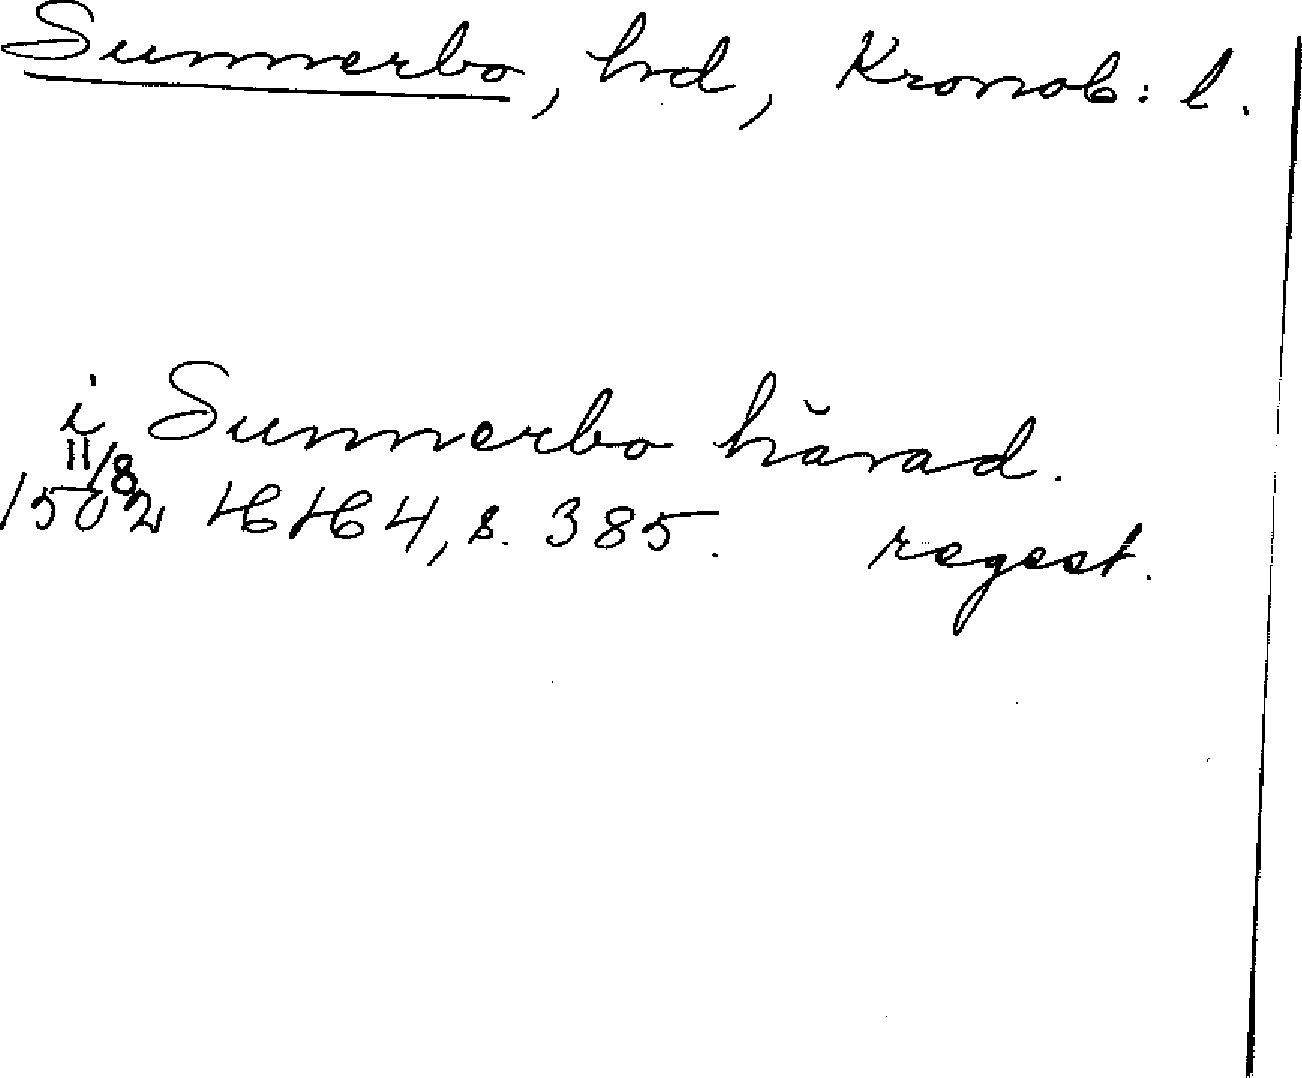 Sunnerbo, hd, Kronob: l.
i Sunnerbo härad.
11/8
1502 HH 4, s. 385. regest.